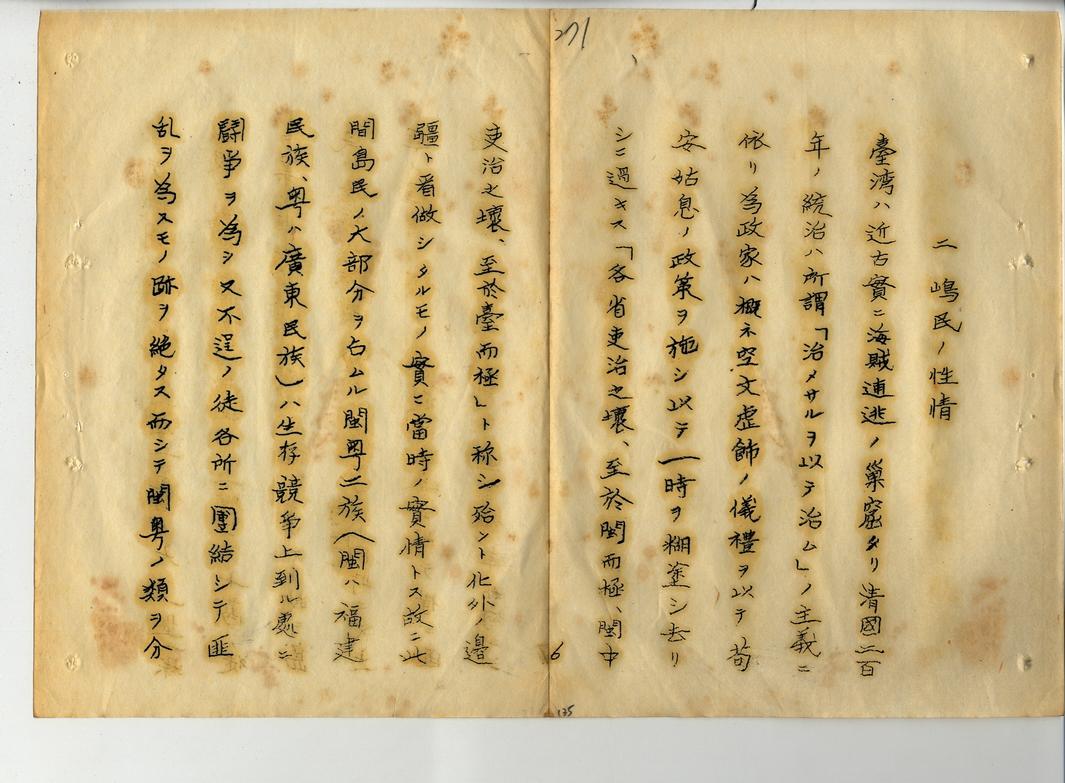 271
二 嶋民ノ性情
臺湾ハ近古實ニ海賊逋逃ノ巣窟タリ清國二百
年ノ統治ハ所謂「治メサルヲ以テ治ム」ノ主義ニ
依リ為政家ハ概ネ空文虚飾ノ儀禮ヲ以テ苟
安姑息ノ政策ヲ施シ以テ一時ヲ糊塗シ去リ
シニ過キス「各省吏治之壞、至於閩而極、閩中
吏治之壞、至於臺而極」ト称シ殆ント化外ノ邊
疆ト看做シタルモノ實ニ當時ノ實情トス故ニ此
間島民ノ大部分ヲ占ムル閩粤二族(閩ハ福建
民族、粤ハ廣東民族)ハ生存競争上到ル處ニ
闘爭ヲ為シ又不逞ノ徒各所ニ團結シテ匪
乱ヲ為スモノ跡ヲ絶タス而シテ閩粤ノ類ヲ分
6
135